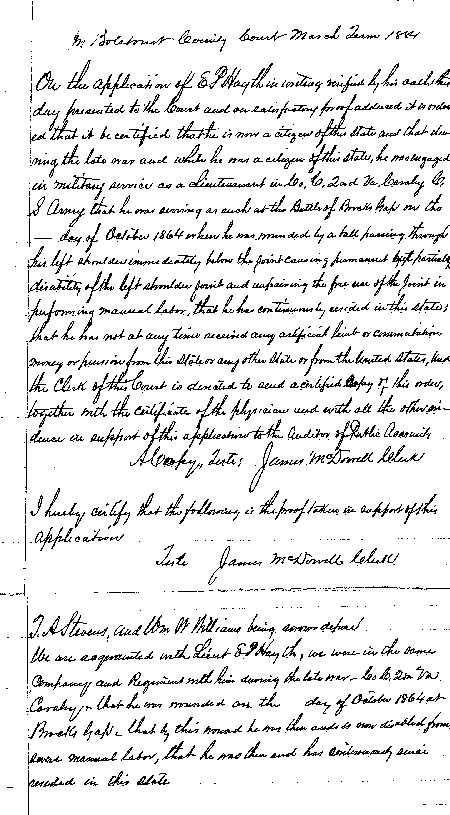 In Botetourt County Court March Term 1884
On the application of E P Hayth in writing verified by his oath this
day presented to the Court and on satisfactory proof adduced it is order
ed that it be certified that he is now a citizen of this State and that du
ring the late war and while he was a citizen of this state, he was engaged
in military service as a Lieutenant in Co, C, 2nd Va, Cavalry C,
S Army that he was serving as such at the Battle of Brocks Gap on the
— day of October 1864 when he was wounded by a ball passing through
his left shoulder immediately below the joint causing permanent but partial
disability of the left shoulder joint and impairing the free use of the joint in
performing manual labor, that he has continuously resided in this state;
that he has not at any time received any artificial limb or commutation
money or pension from this State or any other State or from the United States, And
the Clerk of this Court is directed to send a certified Copy of this order,
together with the certificate of the physician and with all the other evi-
dence in support of this application to the Auditor of Public Accounts
A Copy, Teste; James McDowell Clerk
I hereby certify that the following is the proof taken in support of this
Application
Teste James McDowell Clerk
T. A Stevens, and Wm W Williams being sworn depose
We are acquainted with Lieut E P Hayth, we were in the same
Company and Regiment with him during the late war - Co C, 2nd Va
Cavalry,- that he was wounded on the day of October 1864 at
Brocks Gap - that by this wound he was then and is now disabled from
manual labor, that he was then and has continuously since
resided in this state